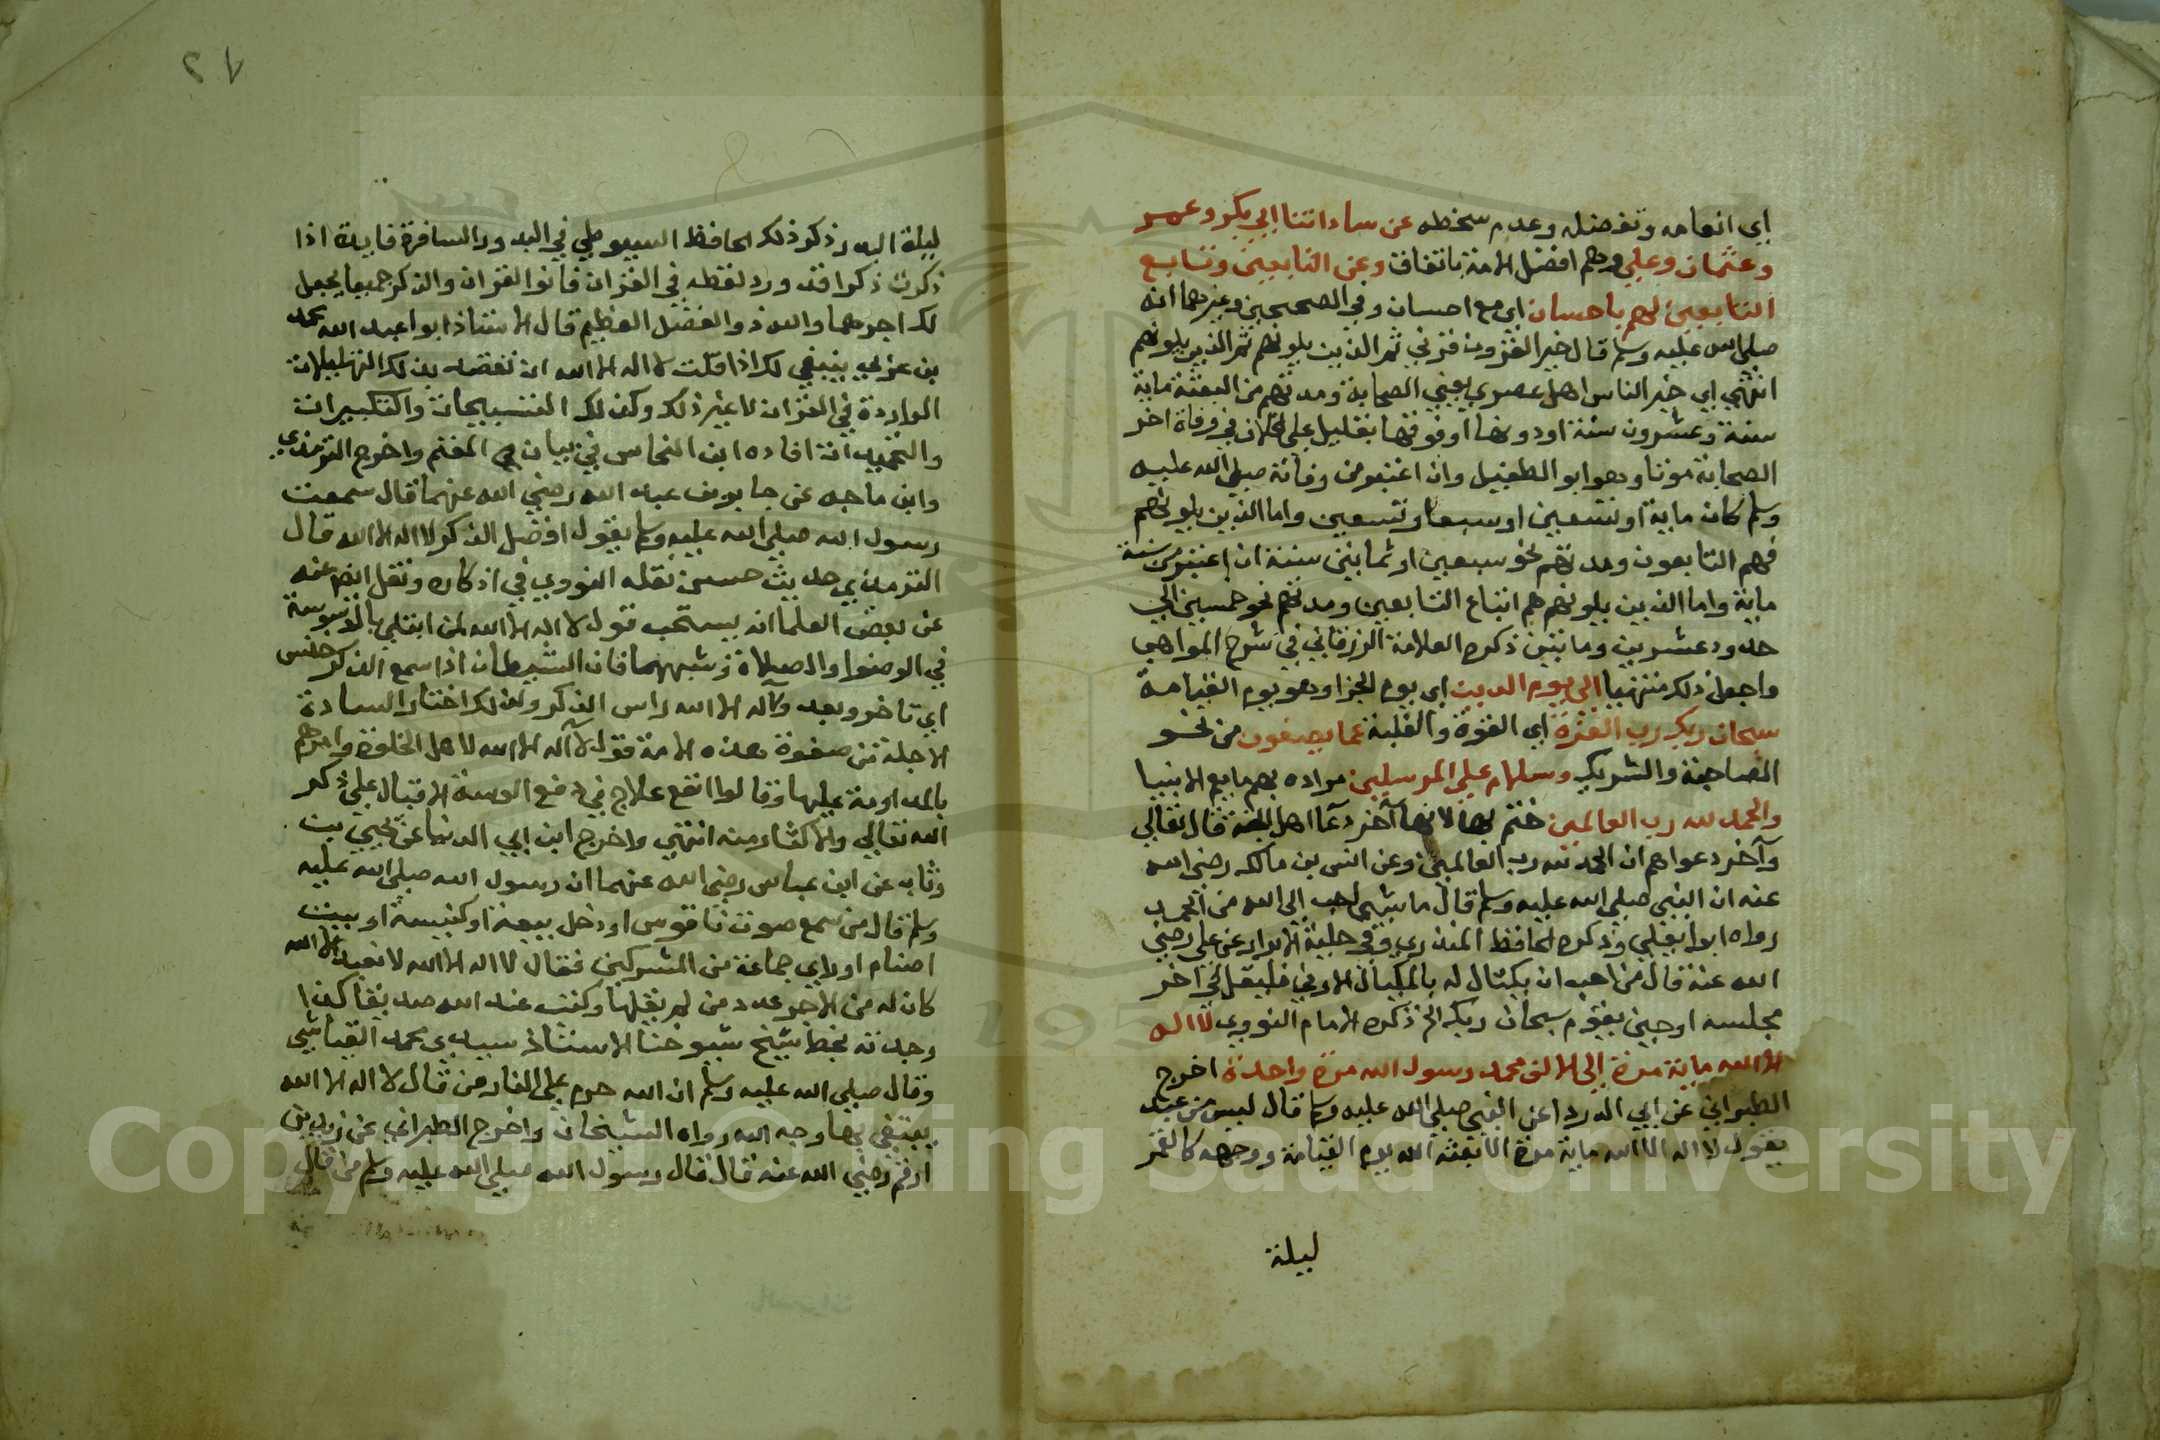 اي انعامه وتفضله وعدم سخطه عن ساداتنا ابي بكر وعمر
وعثمان وعلي وهم افضل الامة باتفاق وعن التابعين وتابع
التابعين لهم باحسان اي مع احسان وفي الصحيحين وغيرهما انه
صلى الله عليه وسلم قال خير القرون قرني ثم الذين يلونهم ثم الذين يلونهم
انتهي اي خير الناس اهل عصري يعني الصحابة ومدتهم من البعثة ماية
سنة وعشرون سنة او دونها او فوقها بقليل على الخلاف في وفاة اخر
الصحابة موتا وهو ابو الطفيل وان اعتبر من وفاته صلى الله عليه
وسلم كان ماية او تسعين او سبعا وتسعين واما الذين يلونهم
فهم التابعون ومدتهم نحو سبعين او ثمانين سنة ان اعتبر من سنة
ماية واما الذين يلونهم هم اتباع التابعين ومدتهم نحو خمسين الي
حدود عشرين ومايتين ذكره العلامة الزرقاني في شرح المواهب
واجعل ذلك منتهيا الي يوم الدين اي يوم الجزا وهو يوم القيامة
سبحان ربك رب العزة اي القوة والغلبة عما يصفون من نحو
الصاحبة والشريك وسلام علي المرسلين مراده بهم مايعم الانبيا
والحمد لله رب العالمين ختم بها لانها آخر دعآ اهل الجنة قال تعالي
وآخر دعواهم ان الحمد لله رب العالمين وعن انس بن مالك رضي الله
عنه ان النبي صلى الله عليه وسلم قال ما شي احب الي الله من الحمد
رواه ابو يعلي وذكره الحافظ المنذري وفي حلية الابرار عن علي رضي
الله عنه قال من احب ان يكتال له بالمكيال الاوفي فليقل في اخر
مجلسه او حين يقوم سبحان ربك الخ ذكره الامام النووي لا اله
الا الله ماية مرة الي الالف محمد رسول الله مرة واحدة اخرج
الطبراني عن ابي الدردا عن النبي صلى الله عليه وسلم قال ليس من عبد
يقول لا اله الا الله ماية مرة الا بعثه الله يوم القيامة ووجهه كالقمر
ليلة
٢٧
ليلة البدر ذكر ذلك الحافظ السيوطي في البدور السافرة فايدة اذا
ذكرت ذكرا قد ورد لفظه في القران فانو القران والذكر جميعا يحصل
لك اجرهما والله ذو الفضل العظيم قال الاستاذ ابو عبد الله محمد
بن عربي ينبغي لك اذا قلت لا اله الا الله ان تقصد بذلك التهليلات
الواردة في القران لا غير ذلك وكذلك التسبيحات والتكبيرات
والتحميدات افاده ابن النحاس في بيان المغنم واخرج الترمذي
وابن ماجه عن جابر بن عبد الله رضي الله عنهما قال سمعت
رسول الله صلى الله عليه وسلم يقول افضل الذكر لا اله الا الله قال
الترمذي حديث حسن نقله النووي في اذكاره ونقل ايضا عنه
عن بعض العلما انه يستحب قول لا اله الا الله لمن ابتلي بالوسوسة
في الوضوا والصلاة وشبههما فان الشيطان اذا سمع الذكر خنس
اي تاخر وبعد ولا اله الا الله راس الذكر ولذلك اختار السادة
الاجلة من صفوة هذه الامة قول لا آله الا الله لاهل الخلوة وامرهم
بالمداومة عليها وقالوا انفع علاج في دفع الوسوسة الاقبال علي ذكر
الله تعالي والاكثار منه انتهي واخرج ابن ابي الدنيا عن يحيي بن
وثاب عن ابن عباس رضي الله عنهما ان رسول الله صلى الله عليه
وسلم قال من سمع صوت ناقوس او دخل بيعة او كنيسة او بيت
اصنام او راي جماعة من المشركين فقال لا اله الا الله لا نعبد الا الله
كان له من الاجر عدد من لم يقلها وكتب عند الله صديقا كذا
وجدته بخط شيخ شيوخنا الاستاذ سيدي محمد القشاشي
وقال صلى الله عليه وسلم ان الله حرم علي النار من قال لا اله الا الله
يبتغي بها وجه الله رواه الشيخان واخرج الطبراني عن زيد بن
ارقم رضي الله عنه قال قال رسول الله صلى الله عليه وسلم من قال
Copyright © King Saud University